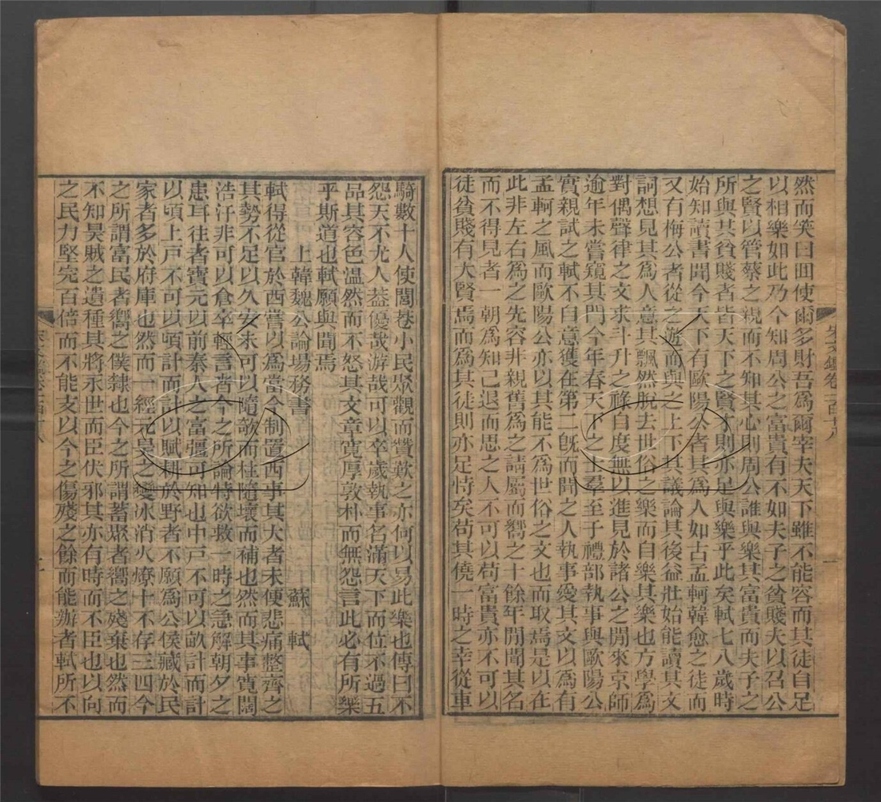 然而笑曰回使爾多財吾爲爾宰夫天下雖不能容而其徒自足
以相樂如此乃今知周公之富貴有不如夫子之貧賤夫以召公
之賢以管蔡之親而不知其心則周公誰與樂其富貴而夫子之
所與共貧賤者皆天下之賢才則亦足與樂乎此矣軾七八歲時
始知讀書聞今天下有歐陽公者其爲人如古孟軻韓愈之徒而
又有梅公者從之遊而與之上下其議論其後益壯始能讀其文
詞想見其爲人意其飄然脫去世俗之樂而自樂其樂也方學爲
對偶聲律之文求斗升之祿自度無以進見於諸公之間來京師
逾年未嘗窺其門今年春天下之士羣至于禮部執事與歐陽公
實親試之軾不自意獲在第二旣而聞之人執事愛其文以爲有
孟軻之風而歐陽公亦以其能不爲世俗之文也而取焉是以在
此非左右爲之先容非親舊爲之請屬而嚮之十餘年間聞其名
而不得見者一朝爲知己退而思之人不可以苟富貴亦不可以
徒貧賤有大賢焉而爲其徒則亦足恃矣苟其僥一時之幸從車
騎數十人使閭巷小民聚觀而贊歎之亦何以易此樂也傳曰不
怨天不尤人葢優哉游哉可以卒歲執事名滿天下而位不過五
品其容色溫然而不怒其文章寬厚敦朴而無怨言此必有所樂
乎斯道也軾願與聞焉
上韓魏公論場務書 蘇軾
軾得從官於西嘗以爲當今制置西事其大者未便悲痛整齊之
其勢不足以久安未可以隨欹而拄隨壞而補也然而其事寬闊
浩汗非可以倉卒輕言者今之所論特欲救一時之急解朝夕之
患耳往者寶元以前秦人之富彊可知也中戸不可以畝計而計
以頃上戸不可以頃計而計以賦耕於野者不願爲公侯藏於民
家者多於府庫也然而一經元昊之變冰消火燎十不存三四今
之所謂富民者嚮之僕隸也今之所謂蓄聚者嚮之殘棄也然而
不知昊賊之遺種其將永世而臣伏邪其亦有時而不臣也以向
之民力堅完百倍而不能支以今之傷殘之餘而能辦者軾所不